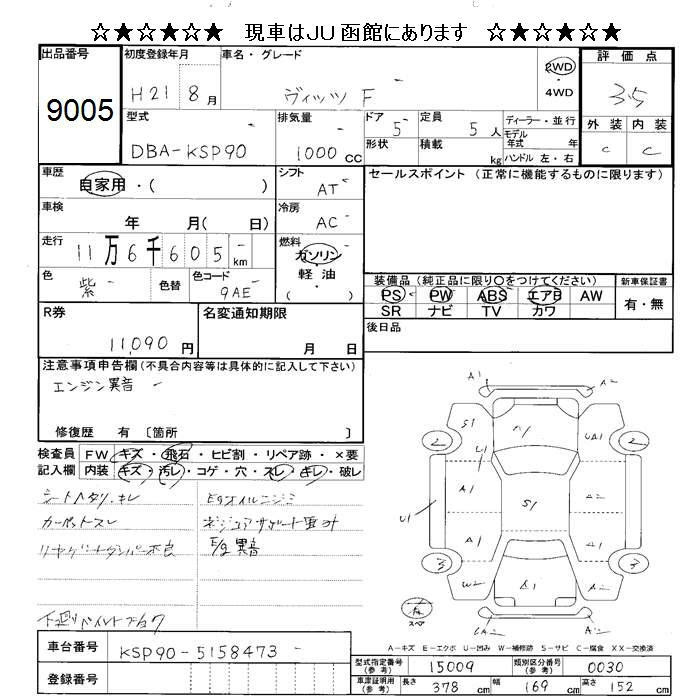 ☆★☆★☆★ 現車はJU函館にあります ☆★☆★☆★
出品番号
9005
初度登録年月
H21 8月
車名・グレード
ヴィッツ F
2WD
・
4WD
評価点
3.5
外装 内装
C C
型式
DBA-KSP90
排気量
1000CC
ドア 5
形状
定員 5人
積載 kg
ディーラー・並行
モデル
年式 年
ハンドル 左・右
車歴
自家用・( )
シフト
AT
セールスポイント(正常に機能するものに限ります)
車検
年 月( 日)
冷房
AC
走行
11万6千605km
燃料
ガソリン
・
軽油
( )
色
紫
色替
色コード
9AE
装備品(純正品に限り○をつけてください)
PS PW ABS エアB AW
SR ナビ TV カワ
新車保証書
有・無
R券
11,090円
名変通知期限
月 日
後日品
注意事項申告欄(不具合内容等は具体的に記入して下さい)
エンジン異音
修復歴 有 〔箇所 〕
検査員
記入欄
FW キズ・飛石・ヒビ割・リペア跡・×要
内装 キズ・汚レ・コゲ・穴・スレ・キレ・破レ
シートヘタリ.キレ
カーペットスレ
リヤゲートダンパー不良
Egオイルニジミ
E/g異音
A1 A2
S1 A1 UA1
2 U1 2
A1 S1 A2
U1 A1 A1
3 3
W2 A1 A2
スペア
A-キズ E-エクボ U-凹み W-補修跡 S-サビ C-腐食 XX-交換済
車台番号
KSP90-5158473
登録番号
型式指定番号
(参考)
15009
類別区分番号
(参考)
0030
車庫証明用
(参考)
長さ 378cm 幅 169cm 高さ 152cm